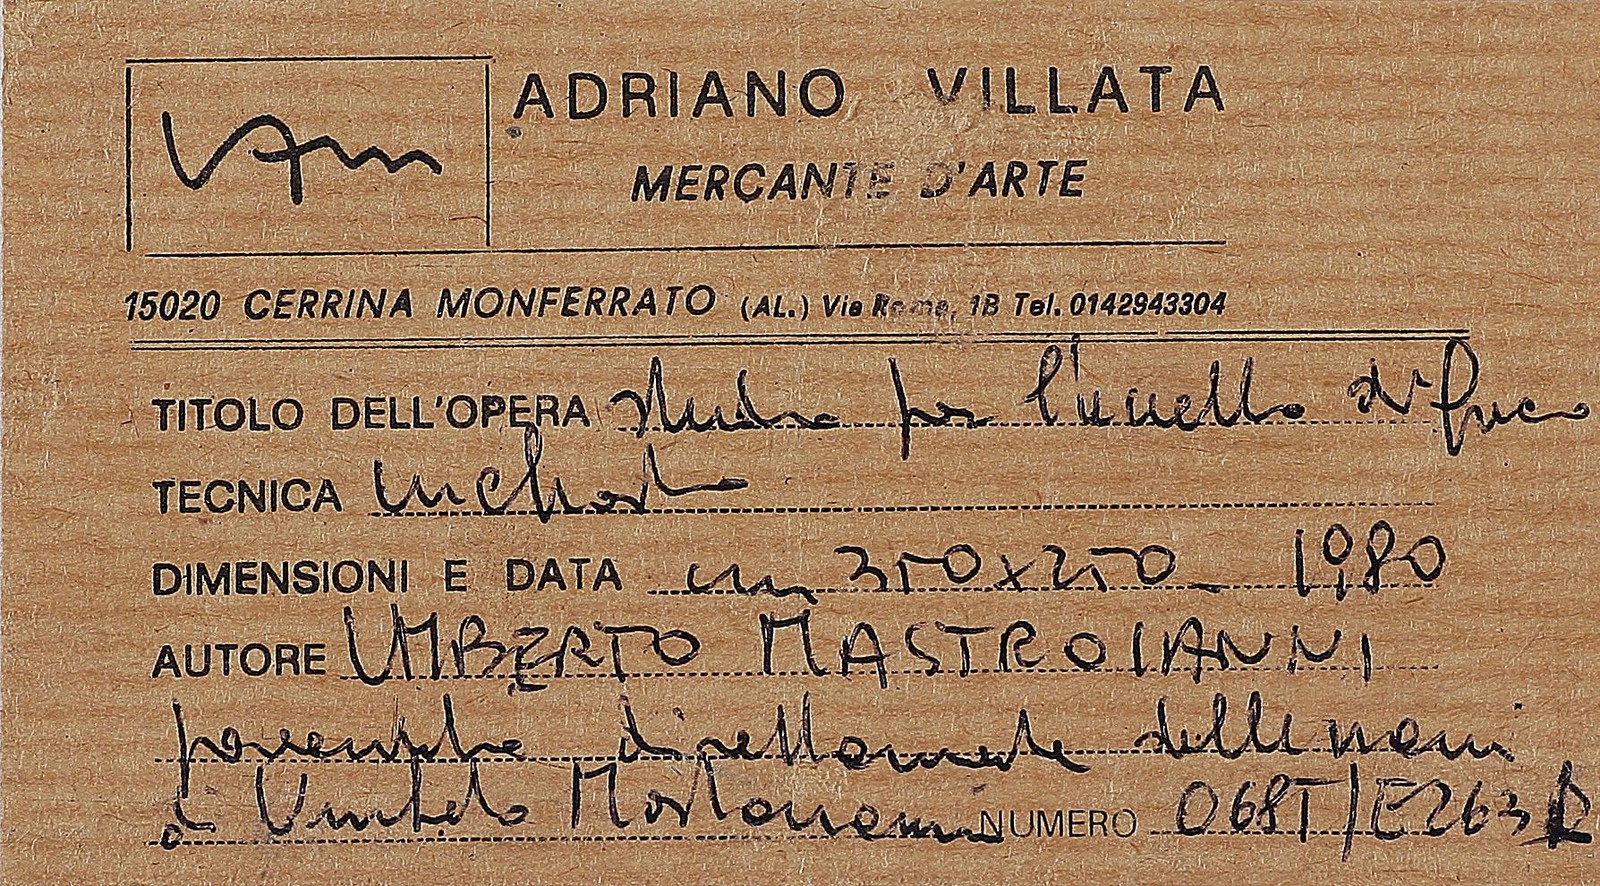 ADRIANO VILLATA
MERCANTE D'ARTE
15020 CERRINA MONFERRATO (AL.) Via Roma, 1B Tel. 0142943304
TITOLO DELL'OPERA studio per l'uccello di fuoco
TECNICA inchiostro
DIMENSIONI E DATA cm 350x250 - 1980
AUTORE UMBERTO MASTROIANNI
direttamente dalle mani
di Umberto Mastroianni NUMERO 068T/E263